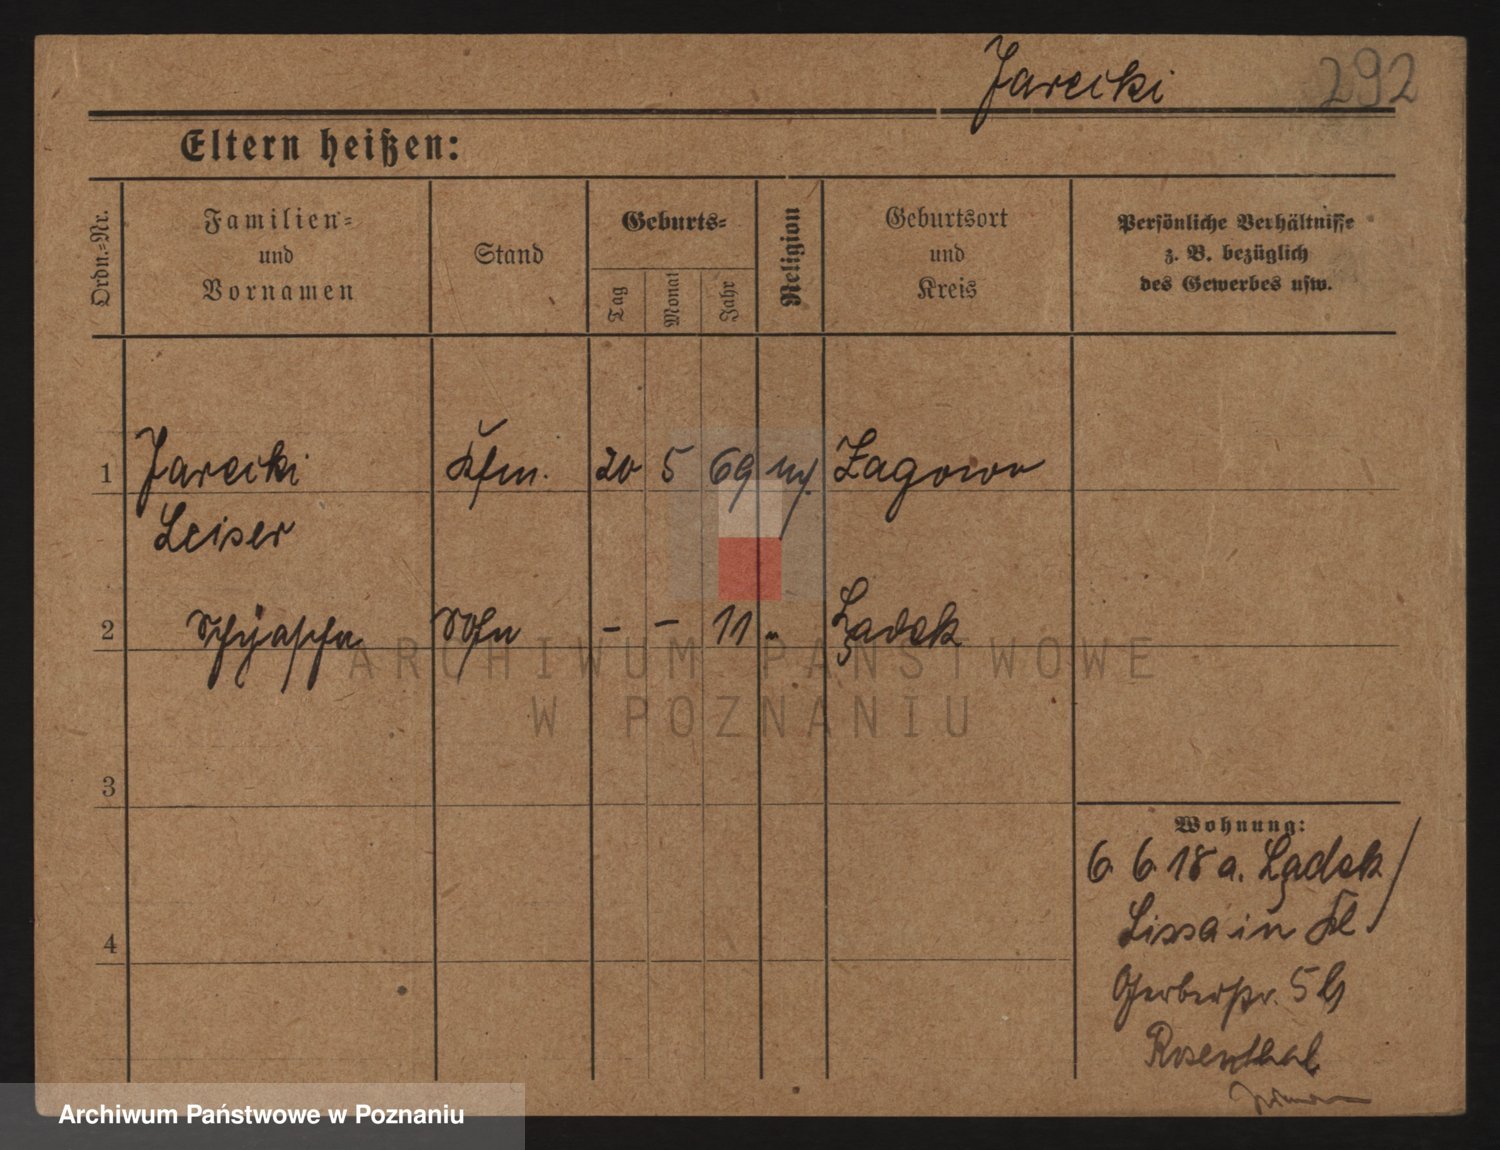 Jarecki 292
Eltern heißen:
Ordn.=Nr.
Familien=
und
Vornamen
Stand
Geburts=
Tag
Monat
Jahr
Religion
Geburtsort
und
Kreis
Persönliche Verhältnisse
z. B. bezüglich
des Gewerbes usw.
1 Jarecki Kfm. 20 5 69 Zagorow
Leiser
2 Sohn – – 11 " Lądek
3
4
Wohnung:
6 6 18 a. Lądek
Lissa in
Gerberstr. 5 b
Rosenthal
ARCHIWUM PAŃSTWOWE
W POZNANIU
Archiwum Państwowe w Poznaniu